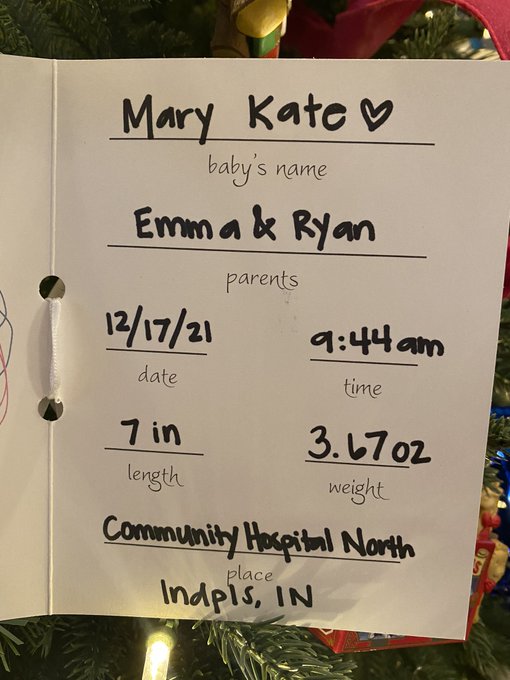 Mary Kate ♡
baby's name
Emma & Ryan
parents
12/17/21
date
9:44 am
time
7 in
length
3.67 oz
weight
Community Hospital North
place
Indpls, IN